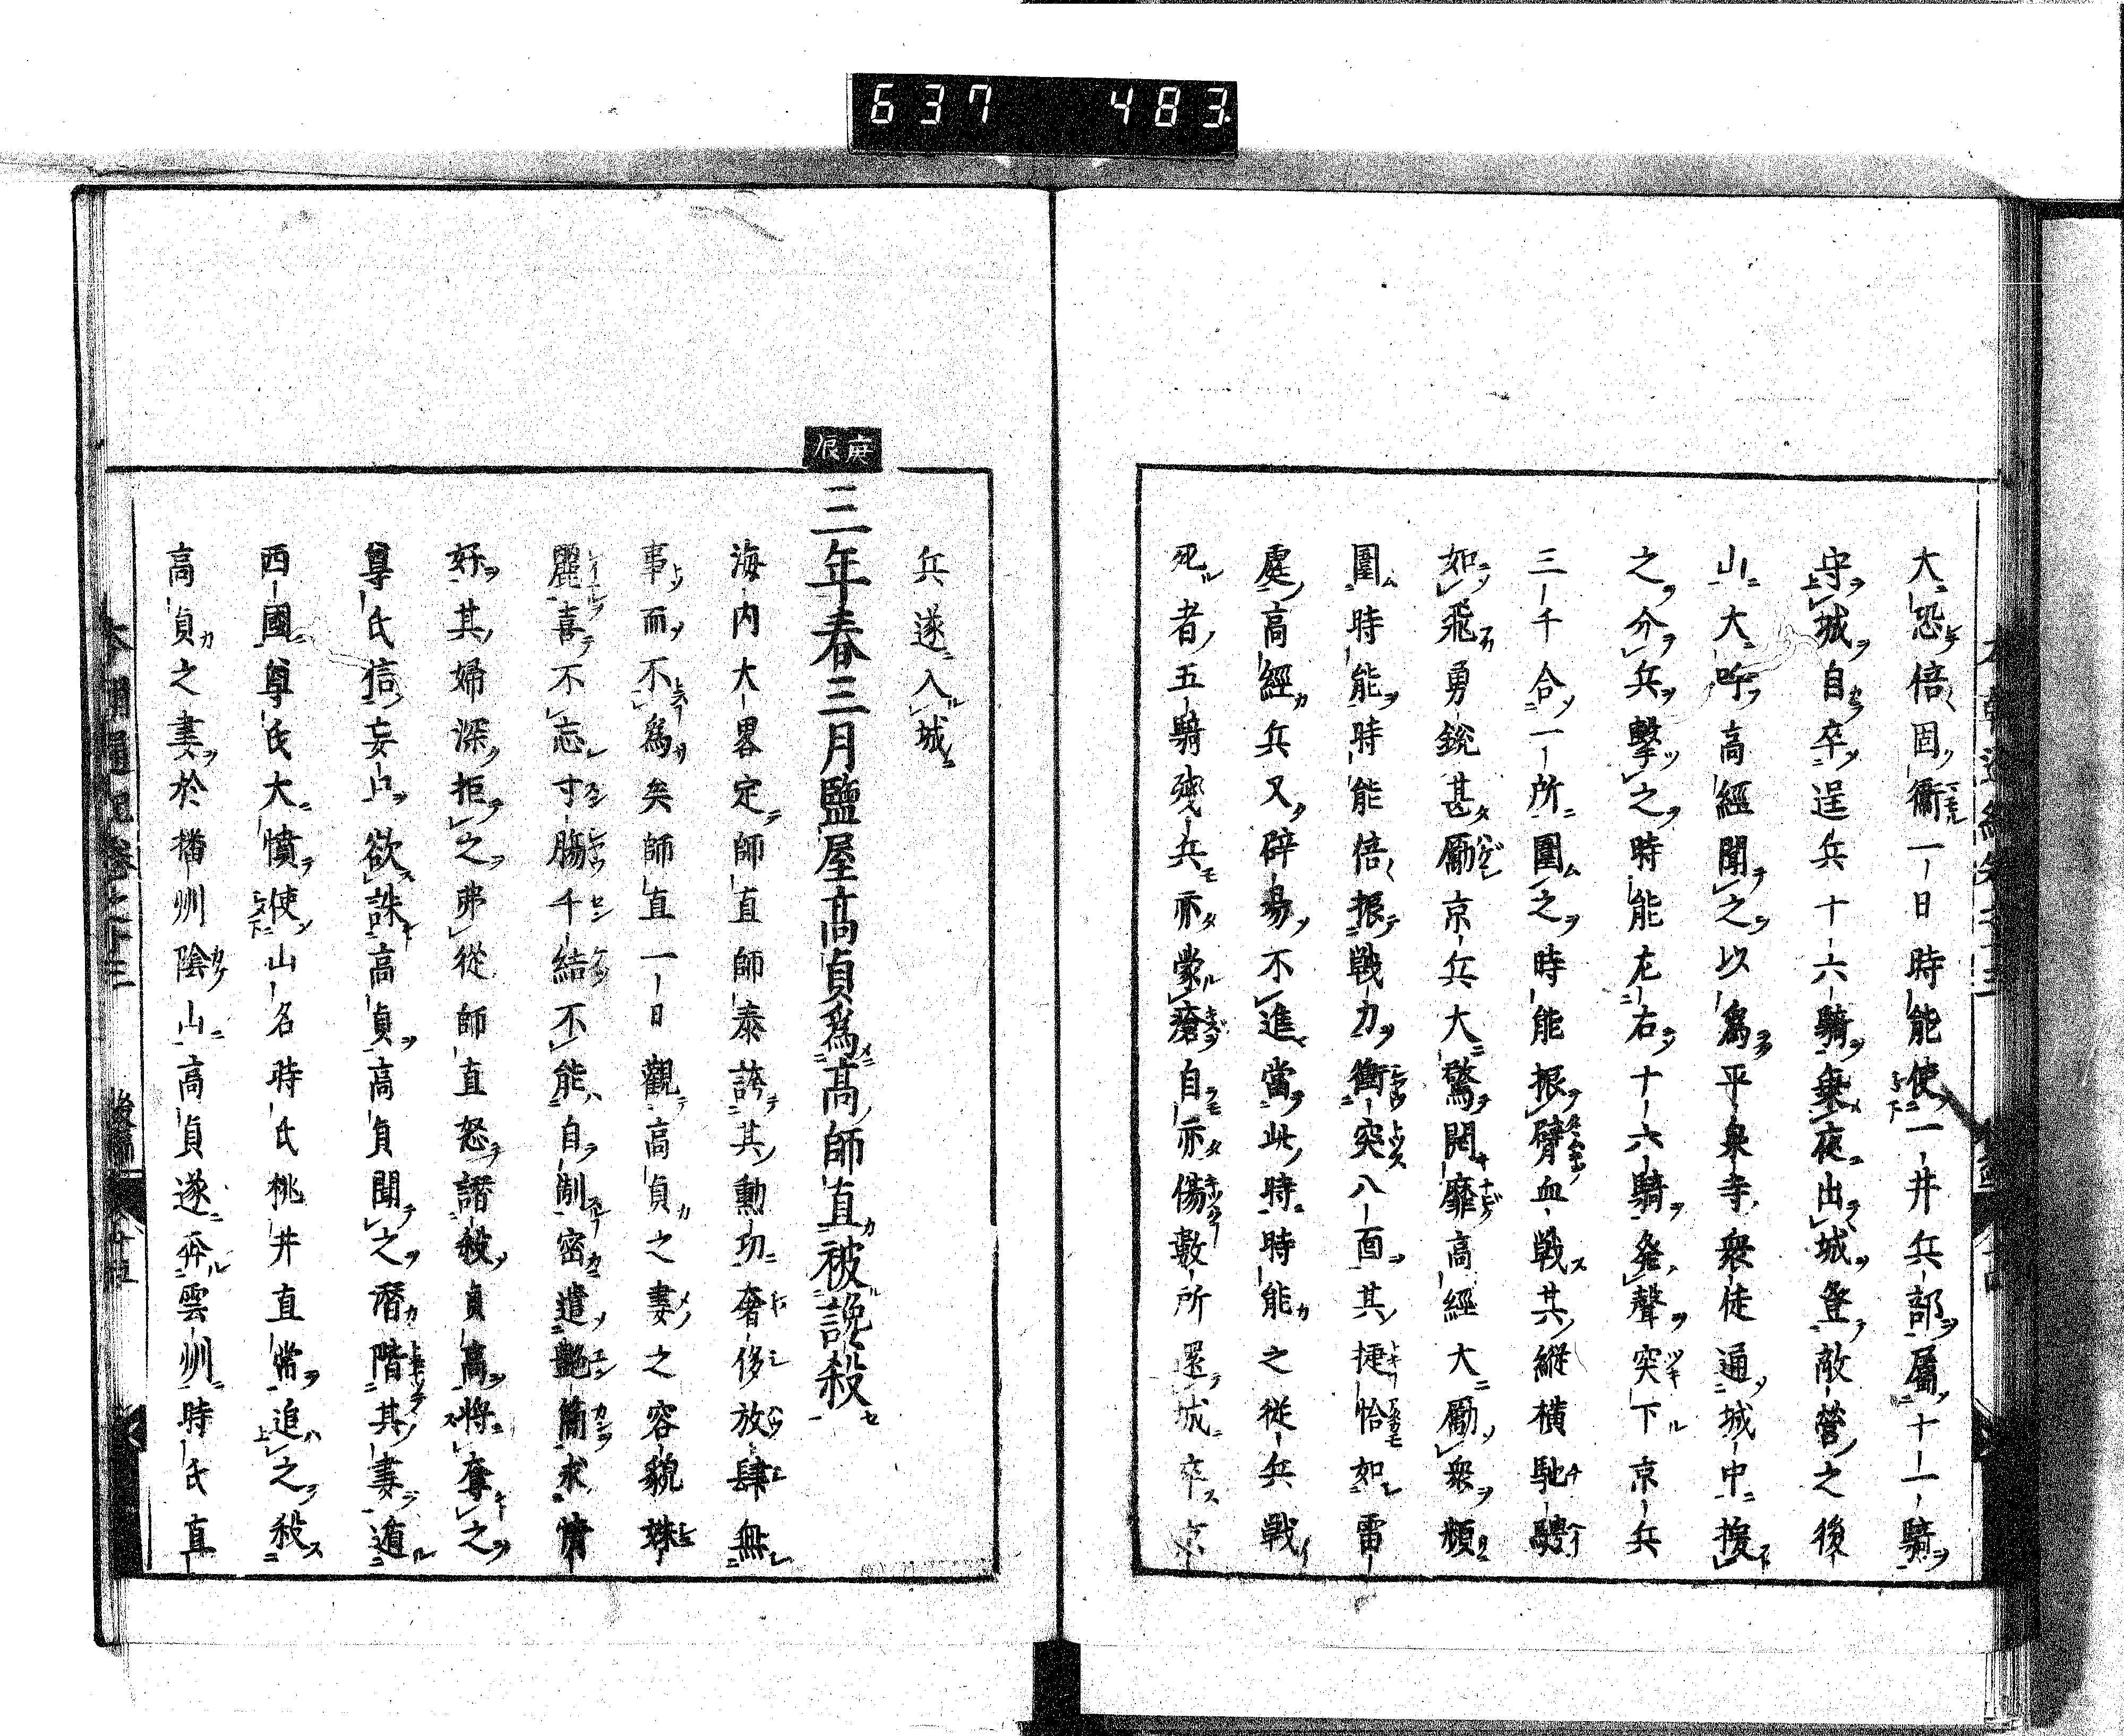 637 483
大恐倍固衞一日時能使一井兵部屬十一騎
守城自卒逞兵十六騎乗夜出城登敵營之後
山大吟高經聞之以爲平泉寺衆徒通城中援
之分兵擊之時能左右十六騎發聲突下京兵
三千合一所圍之時能振臂血戦其縱横馳騁
如飛勇銳甚勵京兵大驚開靡高經大勵衆頻
圍時能時能倍振戦力衝突八面其捷恰如雷
處高經兵又辟易不進當此時時能之従兵戰
死者五騎殘兵亦蒙瘡自亦傷數所還城卒六
兵遂入城
庚辰
三年春三月鹽屋高貞爲高師直被讒殺
海内大畧定師直師泰誇其勳功奢侈放肆無
事而不爲矣師直一日觀高貞之妻之容貌姝
麗喜不忘寸膓千結不能自制密遣艶簡求情
好其婦深拒之弗從師直怒譖殺貞高將奪之
尊氏信妄占欲誅高貞高貞聞之潛階其妻遁
西國尊氏大憤使山名時氏桃井直常追之殺
高貞之妻於播州陰山高貞遂奔雲州時氏直